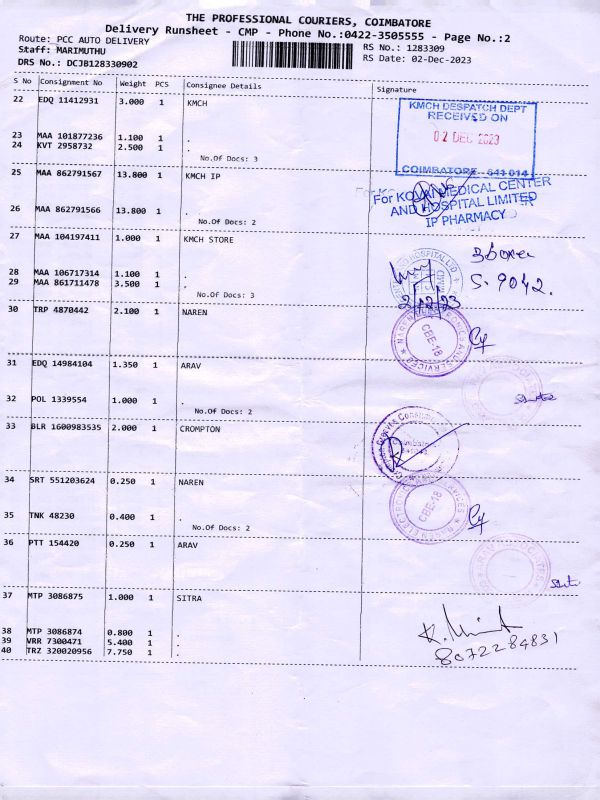 THE PROFESSIONAL COURIERS, COIMBATORE
Delivery Runsheet - CMP - Phone No.:0422-3505555 - Page No.:2
Route: PCC AUTO DELIVERY
RS No.: 1283309
Staff: MARIMUTHU
RS Date: 02-Dec-2023
DRS No.: DCJB128330902
S No Consignment No Weight PCS Consignee Details Signature
22 EDQ 11412931 3.000 1 KMCH
KMCH DESPATCH DEPT
RECEIVED ON
02 DEC 2023
COIMBATORE - 641 014
23 MAA 101877236 1.100 1 .
24 KVT 2958732 2.500 1 .
No.Of Docs: 3
25 MAA 862791567 13.800 1 KMCH IP
For KOVAI MEDICAL CENTER
AND HOSPITAL LIMITED
IP PHARMACY
26 MAA 862791566 13.800 1 .
No.Of Docs: 2
27 MAA 104197411 1.000 1 KMCH STORE
3 boxes
S. 9042.
28 MAA 106717314 1.100 1 .
29 MAA 861711478 3.500 1 .
No.Of Docs: 3
2/12/23
30 TRP 4870442 2.100 1 NAREN
CBE-18
31 EDQ 14984104 1.350 1 ARAV
32 POL 1339554 1.000 1 .
No.Of Docs: 2
33 BLR 1600983535 2.000 1 CROMPTON
34 SRT 551203624 0.250 1 NAREN
CBE-18
35 TNK 48230 0.400 1 .
No.Of Docs: 2
36 PTT 154420 0.250 1 ARAV
37 MTP 3086875 1.000 1 SITRA
38 MTP 3086874 0.800 1 .
39 VRR 7300471 5.400 1 .
40 TRZ 320020956 7.750 1 .
8072284831